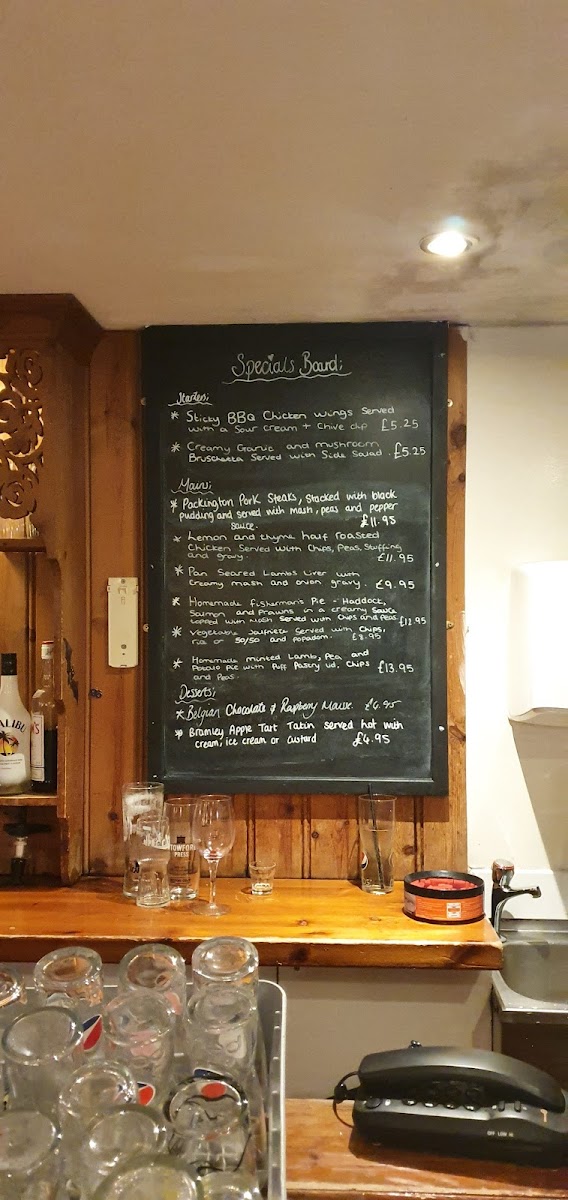 Specials Board;
Starters;
* Sticky BBQ Chicken wings Served
with a Sour cream + Chive dip £5.25
* Creamy Garlic and mushroom
Bruschetta Served with Side Salad . £5.25
Mains;
* Packington Pork Steaks, stacked with black
pudding and served with mash, peas and pepper
sauce. £11.95
* Lemon and thyme half roasted
Chicken Served with Chips, Peas, Stuffing
and gravy. £11.95
* Pan Seared Lambs Liver with
creamy mash and onion gravy. £9.95
* Homemade fisherman's Pie - Haddock,
Salmon and Prawns in a creamy sauce
topped with mash Served with Chips and Peas £12.95
* Vegetable Jalfreize Served with Chips,
rice or 50/50 and popadom. £8.95
* Homemade minted Lamb, Pea and
Potato Pie with Puff Pastry Lid, Chips
and Peas. £13.95
Desserts;
* Belgian Chocolate & Raspberry Mousse. £4.95
* Bramley Apple Tart Tatin served hot with
cream, ice cream or custard £4.95
MALIBU
STOWFORD
PRESS